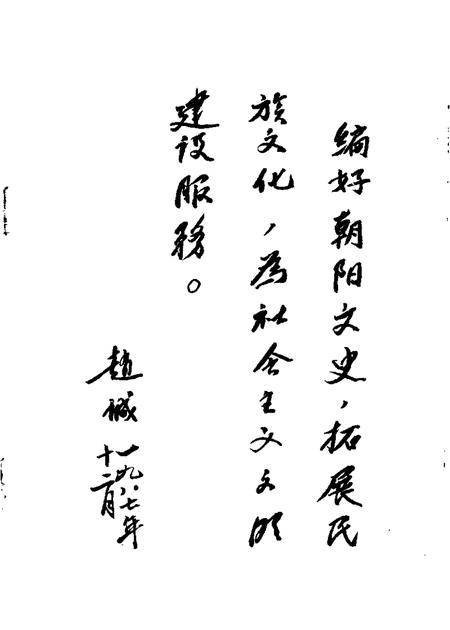 编好朝阳文史,拓展民
族文化,為社会主义文明
建设服務。
趙城
一九八七年
十二月